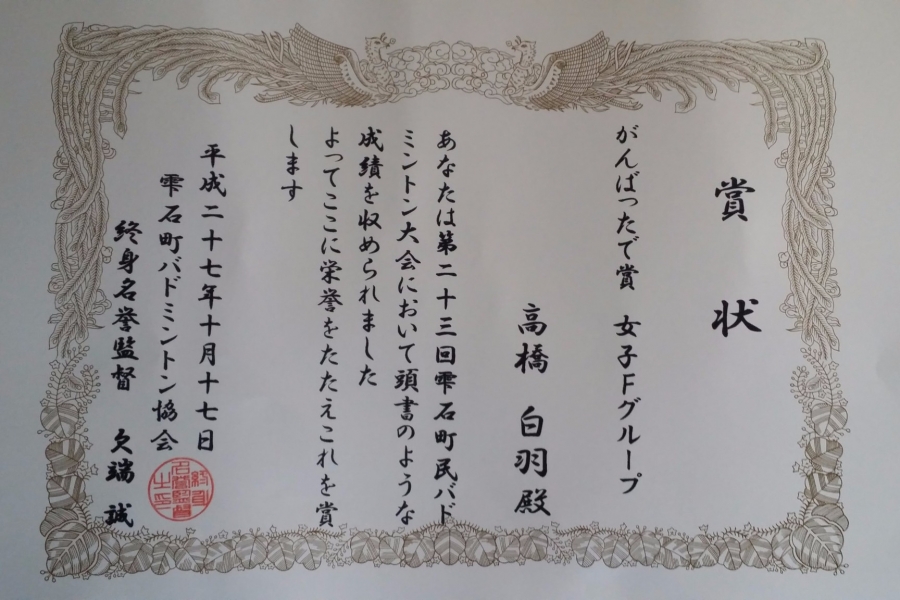 賞状
がんばったで賞 女子Fグループ
高橋 白羽殿
あなたは第二十三回雫石町民バド
ミントン大会において頭書のような
成績を収められました
よってここに栄誉をたたえこれを賞
します
平成二十七年十月十七日
雫石町バドミントン協会
終身名誉監督 欠端 誠
終身名誉監督之印